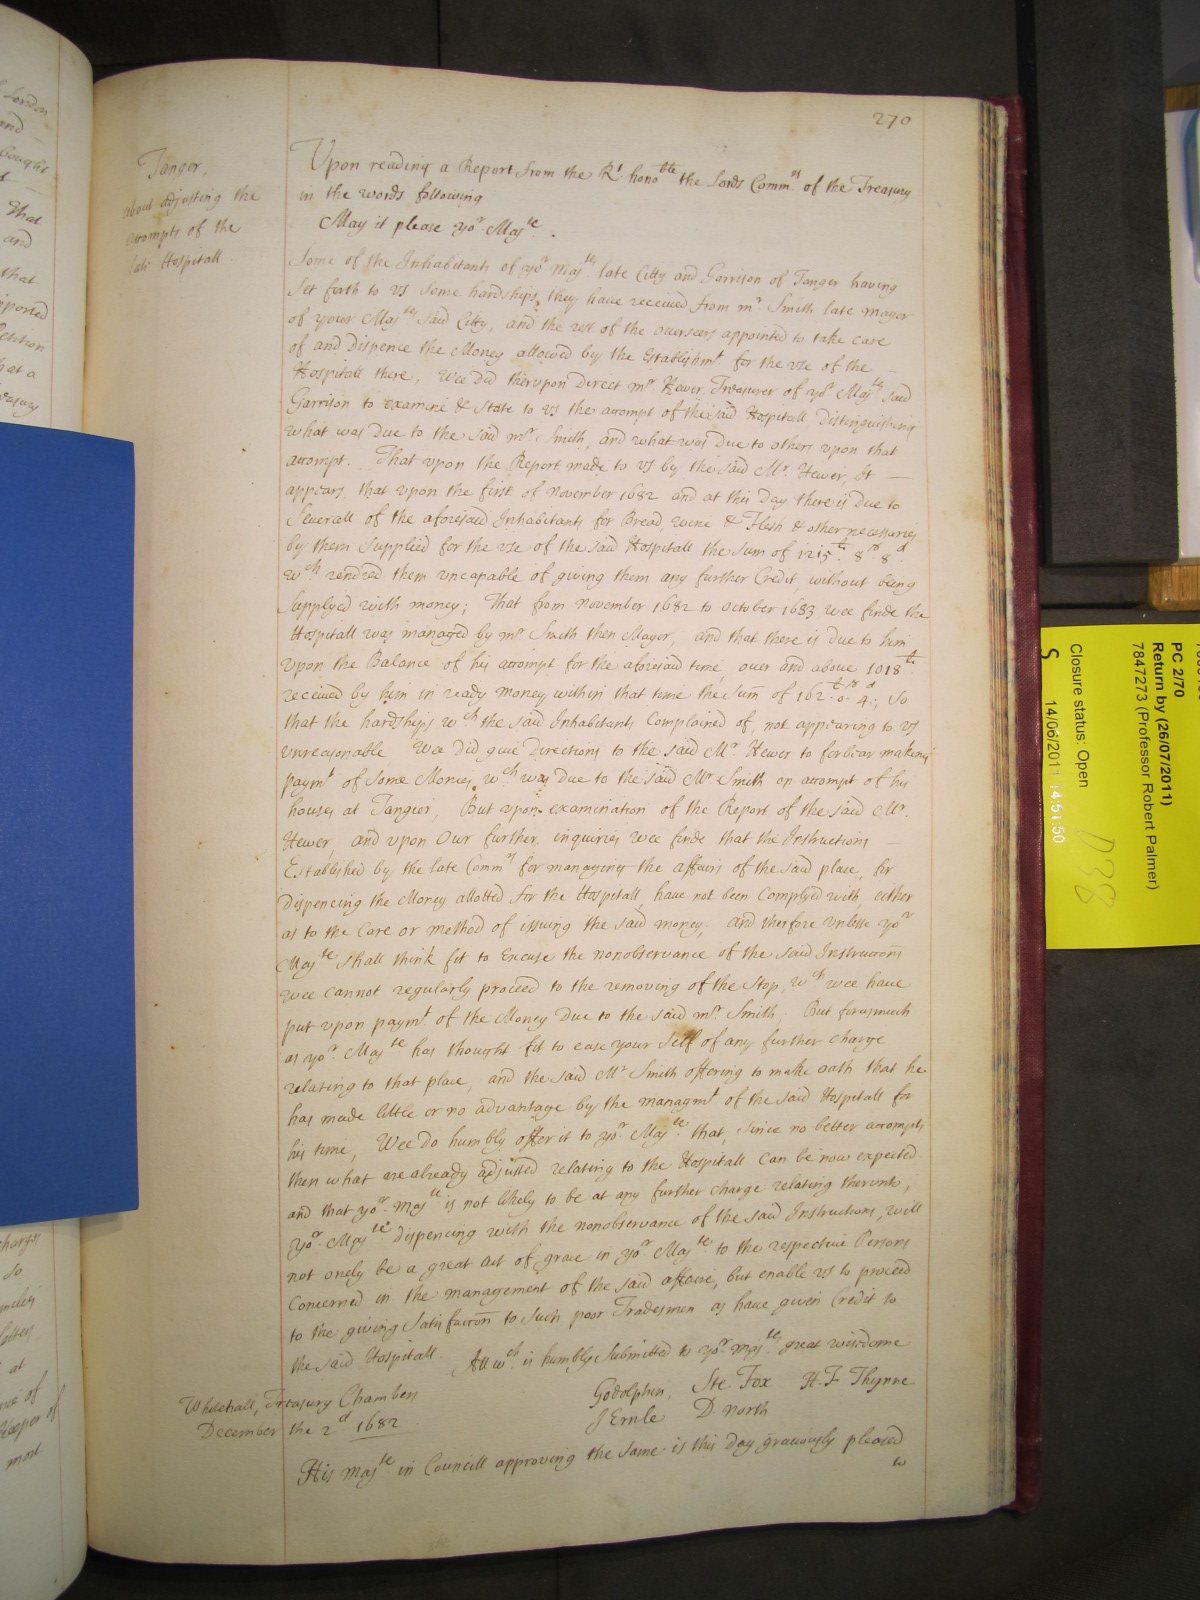 270
Tanger,
about adjusting the
accompts of the
late Hospitall
Upon reading a Report from the Rt. honoble the Lords Commrs of the Treasury
in the words following
May it please yor. Majte.
Some of the Inhabitants of yor Majtys late Citty and Garrison of Tanger having
set forth to vs some hardships they have received from mr. Smith late mayor
of your Majtys said Citty, and the rest of the overseers appointed to take care
of and dispence the Money allowed by the Establishmt for the vse of the –
Hospitall there, Wee did therupon direct mr. Hewer, Treasurer of yor. Majtys said
Garrison to examine & State to vs the accompt of the said Hospitall Distinguishing
what was due to the said mr. Smith, and what was due to others upon that
accompt. That vpon the Report made to vs by the said Mr. Hewer, It –
appears that vpon the first of november 1682 and at this Day there is due to
severall of the aforesaid Inhabitants for Bread, wine & Flesh & other necessaries
by them supplied for the vse of the said Hospitall the sum of 1215li. 8s. 8d
wch rendred them vncapable of giving them any further Credit, without being
supplyed with money; That from november 1682 to october 1683 wee finde the
Hospitall was managed by mr Smith then Mayor, and that there is due to him
vpon the Balance of his accompt for the aforesaid time, over and above 1018li
received by him in ready money within that time the Sum̄ of 162li. 0s. 4d., so
that the hardships wch the said Inhabitants Complained of, not appearing to vs
vnreasonable Wee did give directions to the said Mr. Hewer to forbear making
paymt of some Money, wch was due to the said Mr Smith on accompt of his
houses at Tangier, But vpon examination of the Report of the said Mr.
Hewer, and vpon Our further inquiries wee finde that the Instructions –
Established by the late Commrs for managing the affairs of the said place, for
dispencing the Money allotted for the Hospitall, have not been Complyed with, either
as to the Care or method of issuing the said money, and therfore vnlesse yor
Majte shall think fit to Excuse the nonobservance of the said Instruccions
wee cannot regularly proceed to the removing of the Stop, wch wee have
put vpon paymt of the Money Due to the said mr. Smith, But forasmuch
as yor. Majte has thought fit to ease your self of any further charge
relating to that place, and the said Mr Smith offering to make oath that he
has made little or no advantage by the managmt of the said Hospitall for
his time, Wee do humbly offer it to yor. Majte. that, since no better accompts
then what are already adjusted relating to the Hospitall can be now expected
and that yor. Majte is not likely to be at any further charge relating therunto,
yor. Majtes dispencing with the nonobservance of the said Instructions, will
not onely be a great act of grace in yor Majte to the respective Persons
Concerned in the management of the said affaire, but enable vs to proceed
to the giving satisfaccon̄ to such poor Tradesmen as have given Credit to
the said Hospitall. All wch is humbly submitted to yor. Majtys great wisdome
Whitehall, Treasury Chambers
December the 2d 1682
Godolphin, Ste. Fox H. F. Thynne
J Ernle D. north
His majte in Councill approving the same is this day graciously pleased
to
PC 2/70
Return by (26/07/2011)
7847273 (Professor Robert Palmer)
Closure status: Open
S 14/06/2011 14:51:50
D38